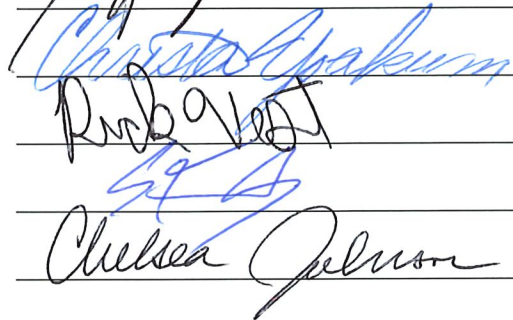 Christa Yoakum
Rick Vest
Chelsea Johnson